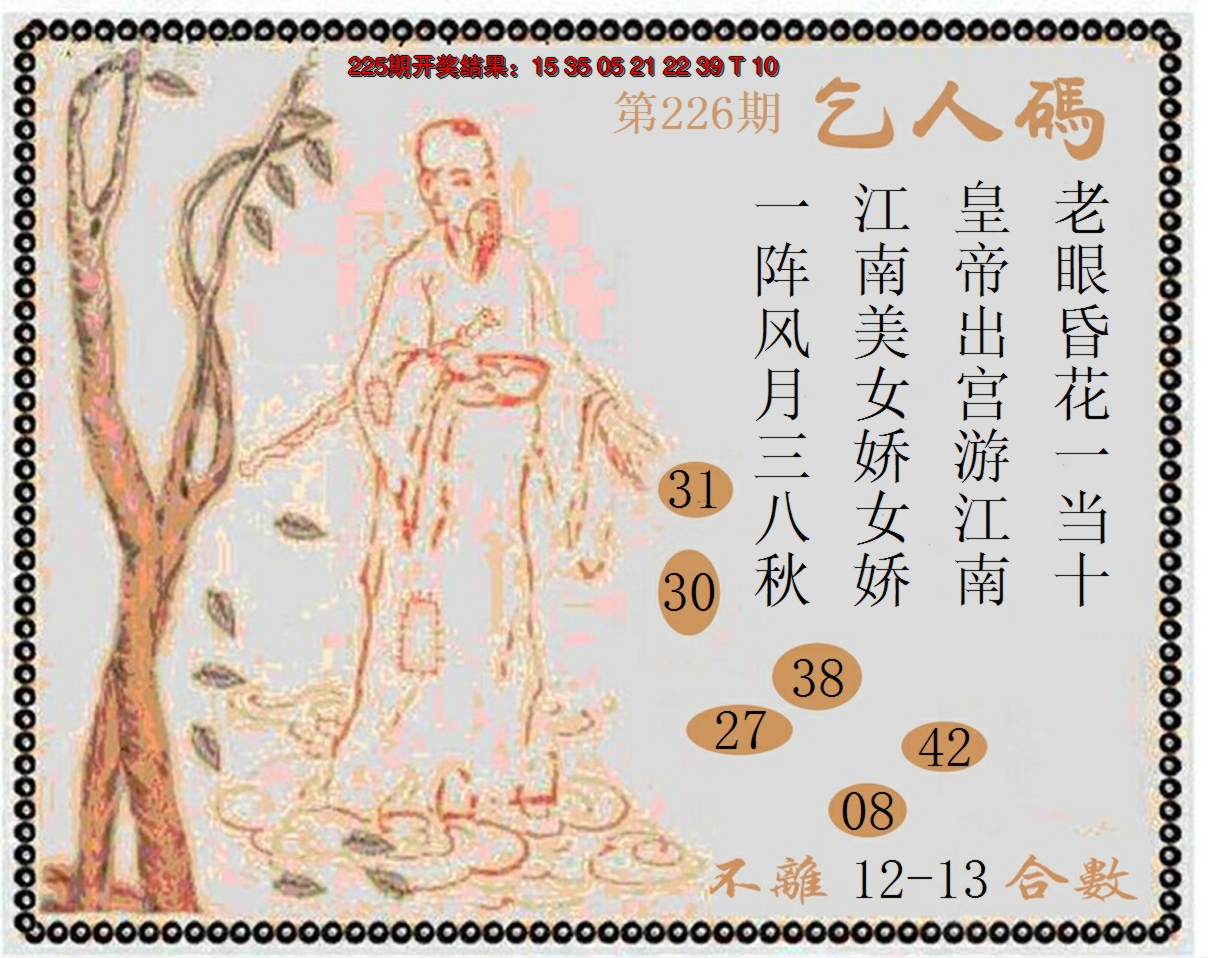 225期开奖结果：15 35 05 21 22 39 T 10
第226期 乞人碼
老眼昏花一当十
皇帝出宫游江南
江南美女娇女娇
一阵风月三八秋
31
30
38
27
42
08
不離 12-13 合數